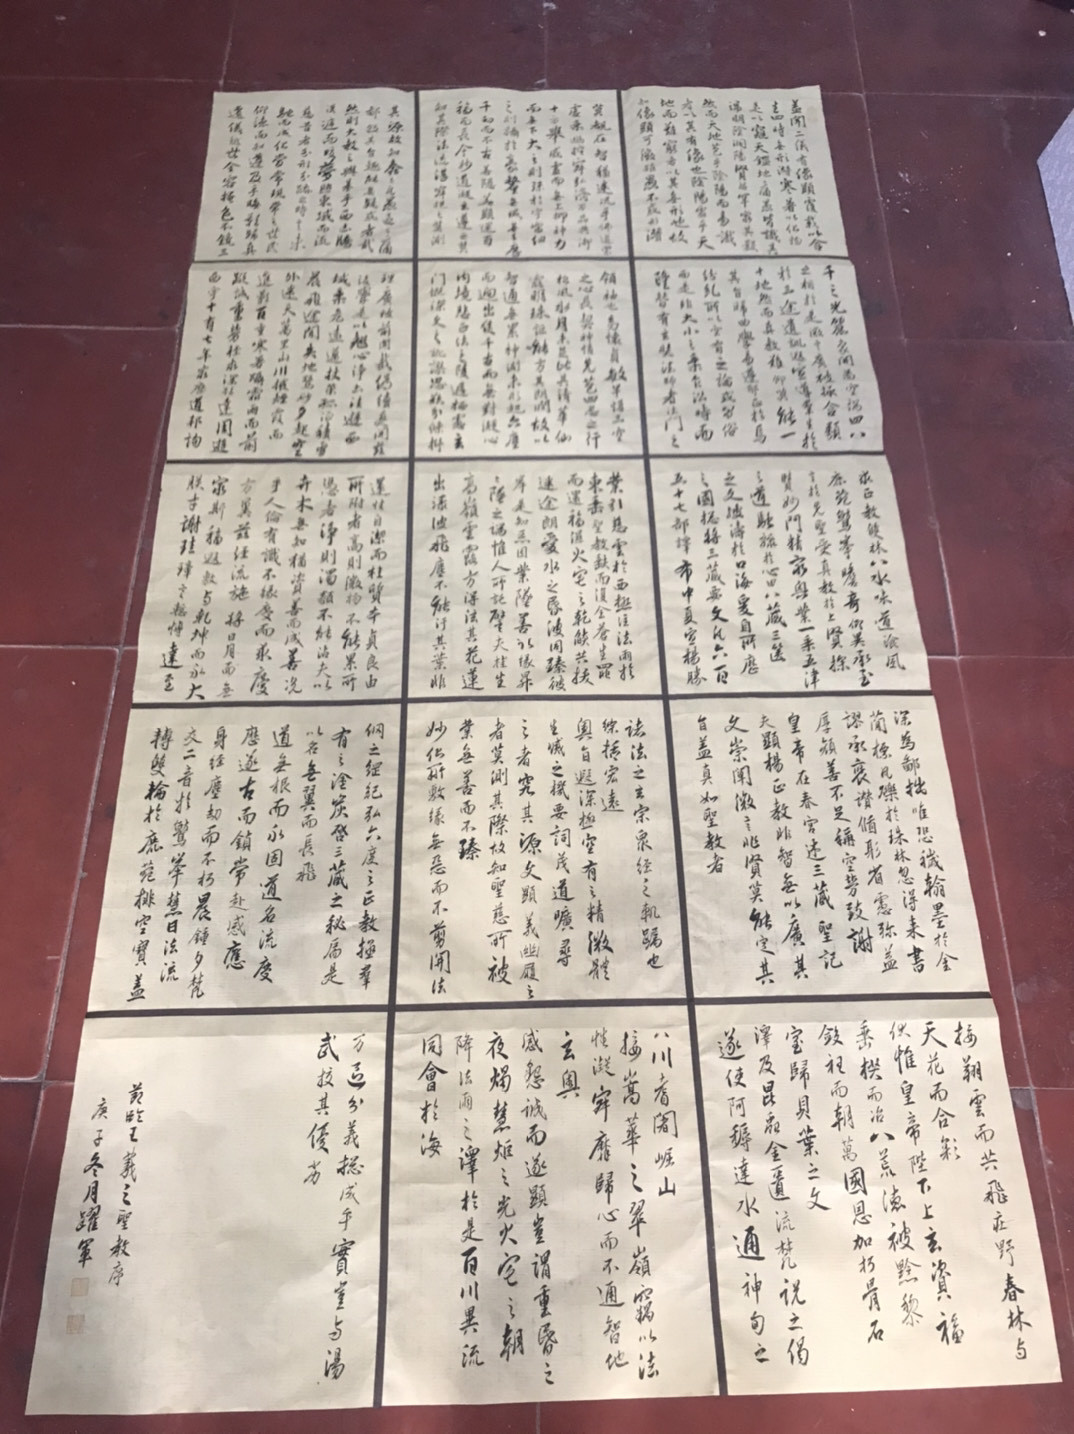 蓋聞二儀有像顯覆載以含
生四時無形潛寒暑以化物
是以窺天鑑地庸愚皆識其
端明陰洞陽賢哲罕窮其數
然而天地苞乎陰陽而易識
者以其有像也陰陽處乎天
地而難窮者以其無形也故
知像顯可徵雖愚不惑形潛
莫覩在智猶迷況乎佛道崇
虛乘幽控寂弘濟万品典御
十方舉威靈而無上抑神力
而無下大之則彌於宇宙細
之則攝於毫釐無滅無生歷
千劫而不古若隱若顯運百
福而長今妙道凝玄遵之莫
知其際法流湛寂挹之莫測
其源故知蠢蠢凡愚區區庸
鄙投其旨趣能無疑惑者哉
然則大教之興基乎西土騰
漢庭而皎夢照東域而流
慈昔者分形分跡之時言未
馳而成化當常現常之世民
仰德而知遵及乎晦影歸真
遷儀越世金容掩色不鏡三
千之光麗象開圖空端四八
之相於是微言廣被拯含類
於三途遺訓遐宣導群生於
十地然而真教難仰莫能一
其旨歸曲學易遵邪正於焉
紛糺所以空有之論或習俗
而是非大小之乘乍沿時而
隆替有玄奘法師者法門之
領袖也幼懷貞敏早悟三空
之心長契神情先苞四忍之行
松風水月未足比其清華仙
露明珠詎能方其朗潤故以
智通無累神測未形超六塵
而迥出隻千古而無對凝心
內境悲正法之陵遲栖慮玄
門慨深文之訛謬思欲分條析
理廣彼前聞截偽續真開茲
後學是以翹心淨土法遊西
域乘危遠邁杖策孤征積雪
晨飛途間失地驚砂夕起空
外迷天萬里山川撥煙霞而
進影百重寒暑躡霜雨而前
蹤誠重勞輕求深願達周遊
西宇十有七年窮歷道邦詢
求正教雙林八水味道湌風
鹿菀鷲峯瞻奇仰異承至
言於先聖受真教於上賢探
賾妙門精窮奧業一乘五律
之道馳驟於心田八藏三篋
之文波濤於口海爰自所歷
之國總將三藏要文凡六百
五十七部譯布中夏宣揚勝
業引慈雲於西極注法雨於
東垂聖教缺而復全蒼生罪
而還福濕火宅之乾焰共拔
迷途朗愛水之昏波同臻彼
岸是知惡因業墜善以緣昇
之墜之端惟人所託譬夫桂生
高嶺雲露方得泫其花蓮
出淥波飛塵不能汙其葉非
蓮性自潔而桂質本貞良由
所附者高則微物不能累所
憑者淨則濁類不能沾夫以
卉木無知猶資善而成善況
乎人倫有識不緣慶而求慶
方冀茲經流施將日月而無
窮斯福遐敷與乾坤而永大
朕才謝珪璋言慙博達至
深為鄙拙唯恐穢翰墨於金
簡標瓦礫於珠林忽得来書
謬承褒讚循躬省慮弥益
厚顏善不足稱空勞致謝
皇帝在春宮述三藏聖記
夫顯揚正教非智無以廣其
文崇闡微言非賢莫能定其
旨蓋真如聖教者
諸法之玄宗衆經之軌躅也
綜括宏遠
奧旨遐深極空有之精微體
生滅之機要詞茂道曠尋
之者究其源文顯義幽履之
者莫測其際故知聖慈所被
業無善而不臻
妙化所敷緣無惡而不剪開法
網之經紀弘六度之正教拯羣
有之塗炭啓三藏之秘扃是
以名無翼而長飛
道無根而永固道名流慶
歷遂古而鎮常赴感應
身經塵劫而不朽晨鍾夕梵
交二音於鷲峯慧日法流
轉雙輪於鹿菀排空寶蓋
接翔雲而共飛莊野春林与
天花而合彩
伏惟皇帝陛下上玄資福
垂拱而治八荒德被黔黎
斂衽而朝萬國恩加朽骨石
室歸貝葉之文
澤及昆蟲金匱流梵說之偈
遂使阿耨達水通神甸之
八川耆闍崛山
接嵩華之翠嶺竊以法
性凝寂靡歸心而不通智地
玄奧
感懇誠而遂顯豈謂重昏之
夜燭慧炬之光火宅之朝
降法雨之澤於是百川異流
同會於海
万區分義揔成乎實豈与湯
武校其優劣
節臨王羲之聖教序
庚子冬月躍軍